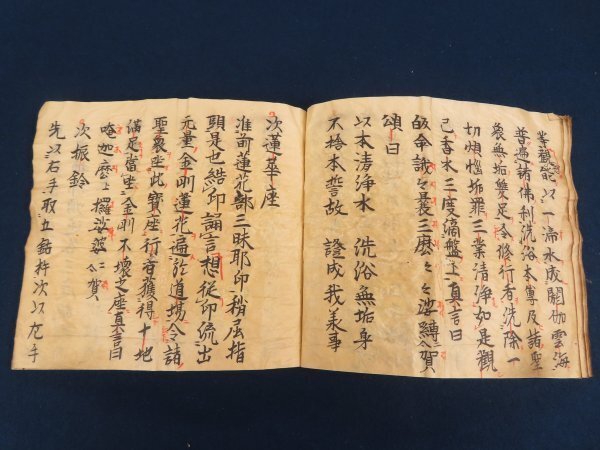 掌觀想以一渧水成閼伽雲海
普遍諸佛刹洗浴本尊及諸聖
衆無垢雙足令修行者洗除一
切煩惱垢罪三業清淨如是觀
已香水三度滴盤上真言曰
頌曰
以本清淨水 洗浴無垢身
不捨本誓故 證成我美事
次蓮華座
准前蓮花部三昧耶印稍屈指
頭是也結印誦言想従印流出
元量金剛蓮花遍於道場令諸
聖衆坐此寳座行者獲得十地
滿足當坐金剛不壞之座真言曰
唵迦麽上攞娑嚩二合賀
次振鈴
先以右手取五鈷杵次以左手